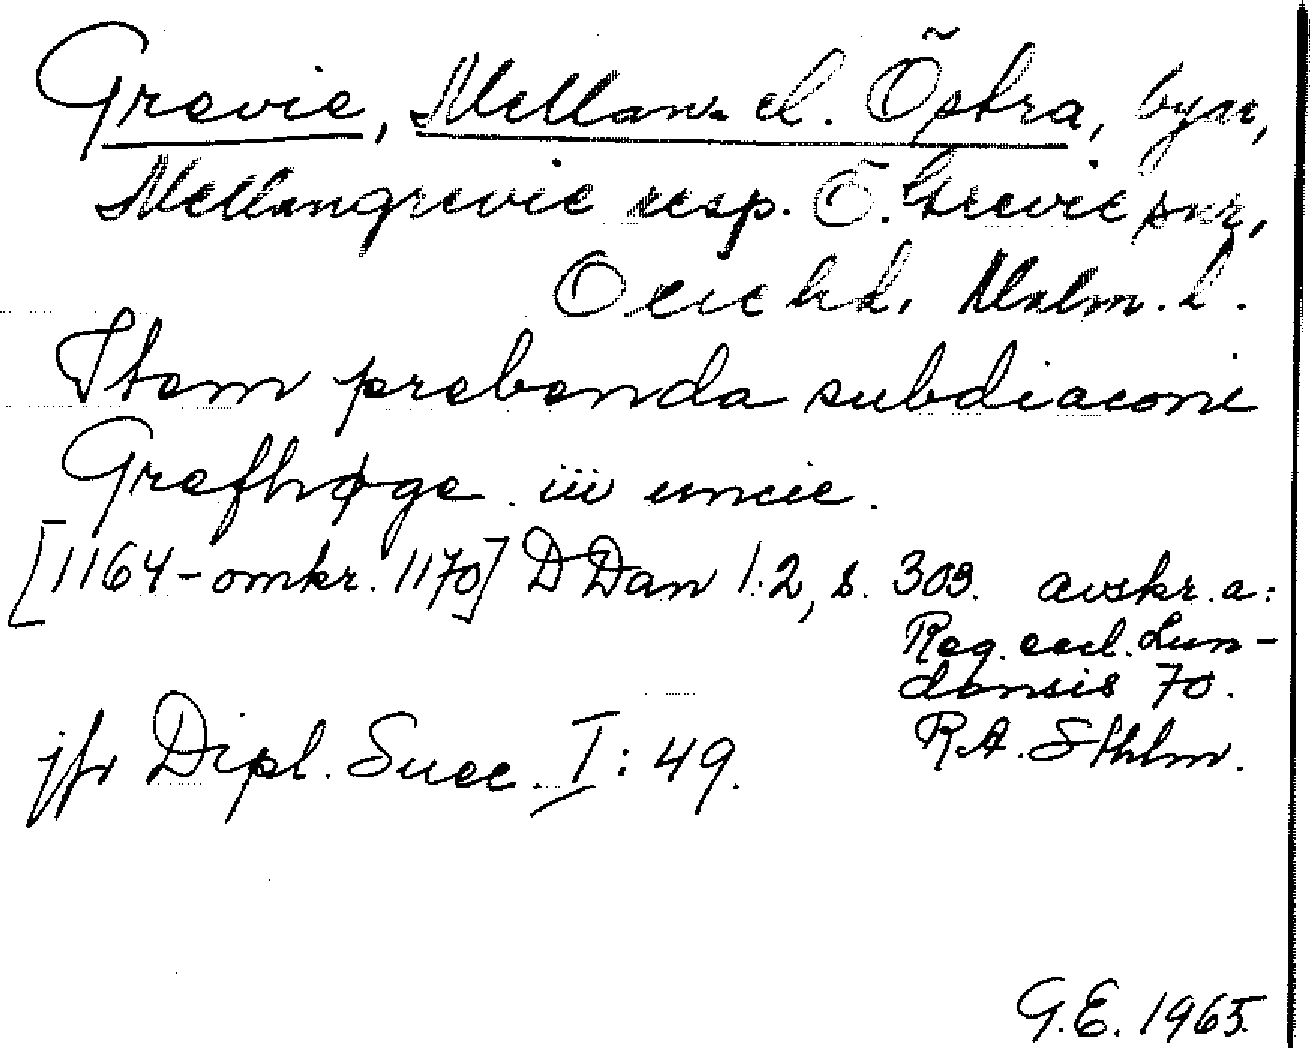 Grevie, Mellan- el. Östra, byar,
Mellangrevie resp. Ö. Grevie snr,
Oxie hd. Malm. l.
Item prebenda subdiaconi
Grefhøge iii uncie.
[1164-omkr. 1170] DDan 1:2, s. 303. avskr. a:
Reg. eccl. Lun-
densis 70.
R.A. Sthlm.
jfr Dipl. Suec. I: 49.
G.E. 1965.